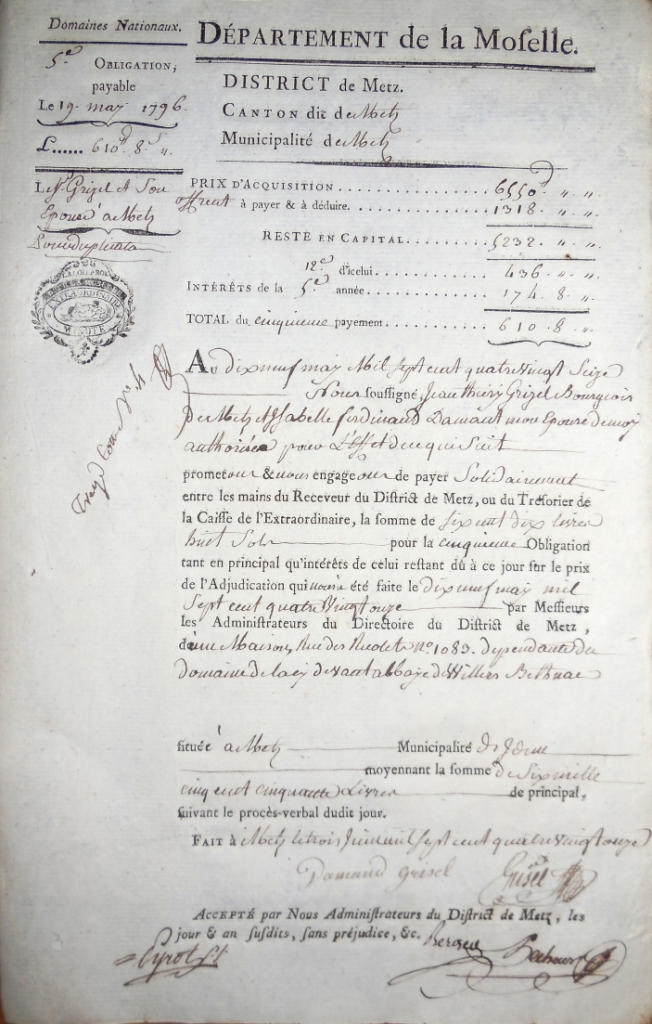 Domaines Nationaux.
5.e OBLIGATION,
payable
Le 19. may 1796.
L...... 610.# 8.s „
DÉPARTEMENT de la Moſelle.
DISTRICT de Metz.
CANTON dit de Metz
Municipalité de Metz
Le S.r Grizel et Son
Epouse à Metz
PRIX D'ACQUISITION . . . . . . . . . . . 6550.# „ „
offrent à payer & à déduire. . . . . . . . . . . 1318. „ „
RESTE EN CAPITAL. . . . . . . . 5232. „ „
12.e d'icelui . . . . . . . . . . 436. „ „
INTÉRÊTS de la 5.e année. . . . . . . . . . 174. 8. „
TOTAL du cinquieme payement. . . . . . . . . . . 610. 8. „
EXTRAORDINAIRE
MINUTE
AU dix neuf may Mil Sept cent quatre vingt Seize
Nous ſouſſigné, Jean Thiery Grizel Bourgeois
de Metz et Isabelle ferdinand Damant mon Epouse de moy
authorisée pour L'Effet de ce qui Suit
prometons & nous engageons de payer Solidairement
entre les mains du Receveur du Diſtrict de Metz, ou du Tréſorier de
la Caiſſe de l'Extraordinaire, la ſomme de Six cent dix livres
huit Sols pour la cinquieme Obligation
tant en principal qu'intérêts de celui reſtant dû à ce jour ſur le prix
de l'Adjudication qui nous a été faite le dix neuf may mil
Sept cent quatre Vingt onze par Meſſieurs
les Adminiſtrateurs du Directoire du Diſtrict de Metz,
d'une Maison, Rue des Recolets n.o 1083. dependante du
Domaine de la cy devant abbaye de Villers Bethnac
ſituée à Metz Municipalité de
moyennant la ſomme de Six mille
cinq cent cinquante Livres de principal,
ſuivant le procès-verbal dudit jour.
FAIT à Metz le trois Juin mil Sept cent quatre vingt onze
Damand grisel Grisel
ACCEPTÉ par Nous Adminiſtrateurs du Diſtrict de Metz, les
jour & an ſuſdits, ſans préjudice, &c.
Pyrot